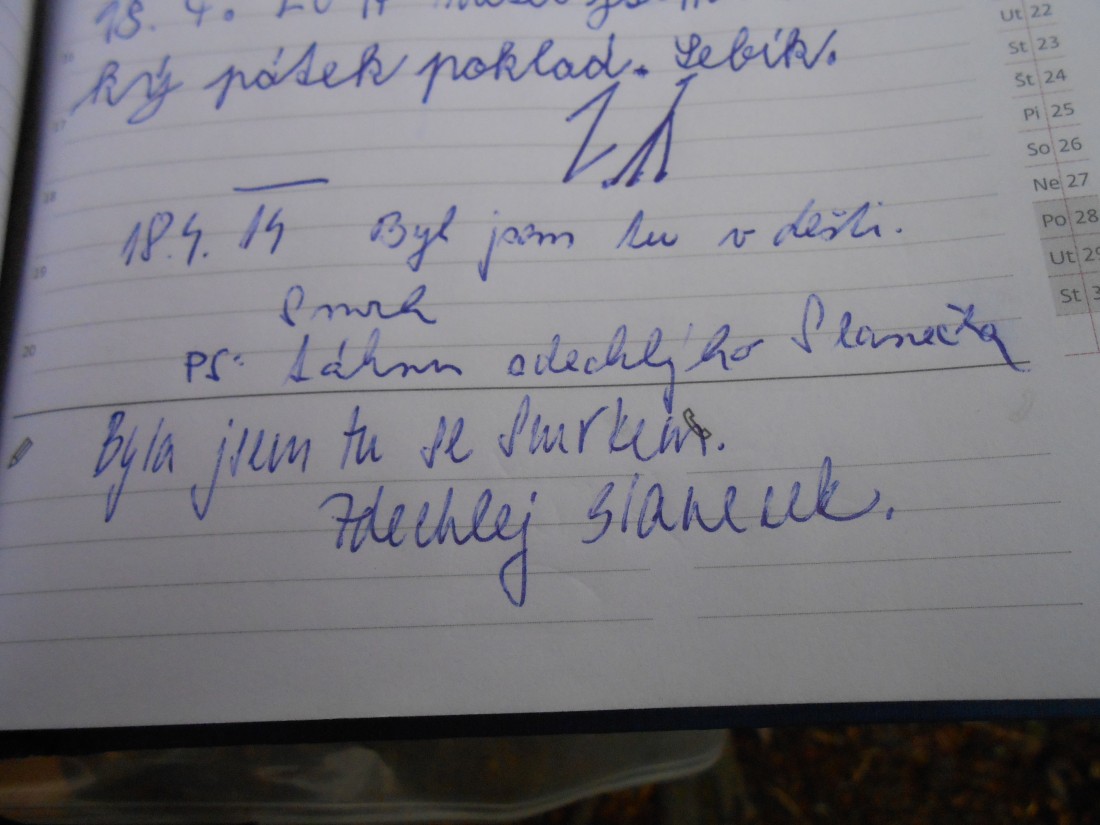 18. 4. 2014
ký pátek poklad. Lebík.
18.4. 14 Byl jsem tu v dešti.
Smrk
PS: táhnu zdechlýho Slanečka
Byla jsem tu se Smrkem.
Zdechlej slaneček.
Ut 22
St 23
Št 24
Pi 25
So 26
Ne 27
Po 28
Ut 29
St 3
17
18
19
20